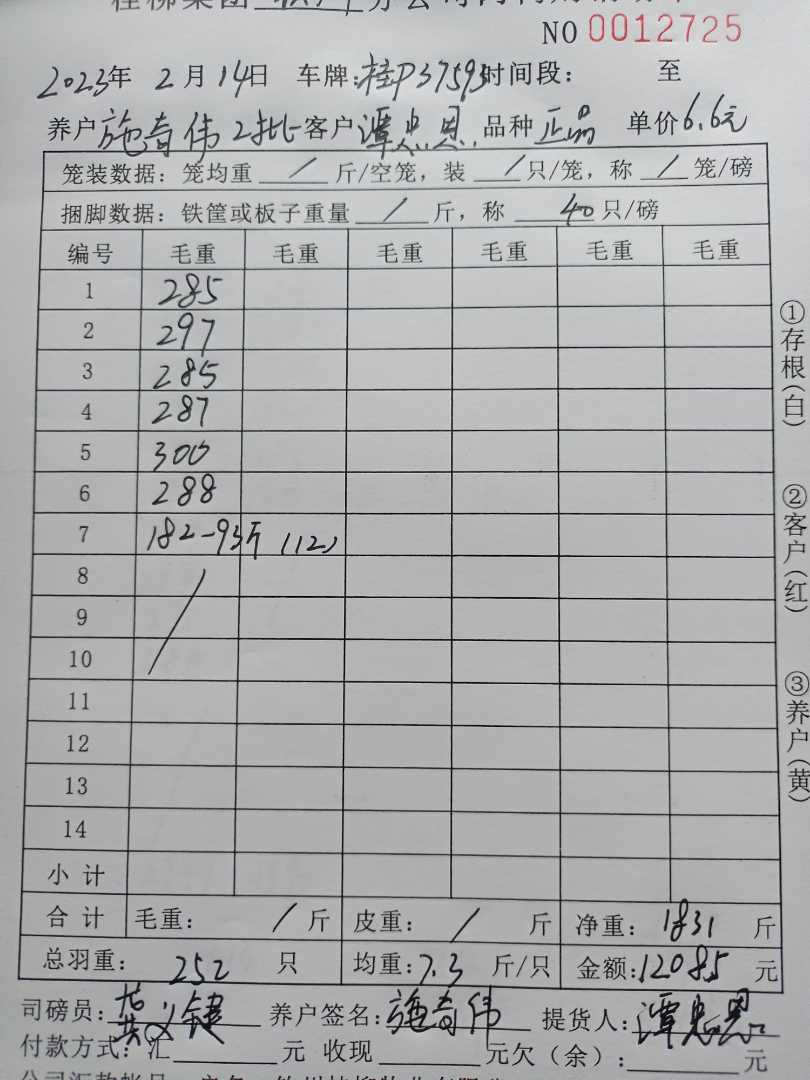 NO 0012725
2023年 2月 14日 车牌:桂P37593 时间段: 至
养户 施奇伟 2批 客户 谭忠恩 品种 正品 单价 6.6元
笼装数据: 笼均重 / 斤/空笼, 装 / 只/笼, 称 / 笼/磅
捆脚数据: 铁筐或板子重量 / 斤, 称 40 只/磅
编号 毛重 毛重 毛重 毛重 毛重 毛重
1 285
2 297
3 285
4 287
5 300
6 288
7 182-93斤 (12)
8 /
9
10
11
12
13
14
小计
合计 毛重: / 斤 皮重: / 斤 净重: 1831 斤
总羽重: 252 只 均重: 7.3 斤/只 金额: 12085 元
司磅员: 养户签名: 施奇伟 提货人: 谭忠恩
付款方式: 汇 元 收现 元欠(余): 元
①存根(白)
②客户(红)
③养户(黄)